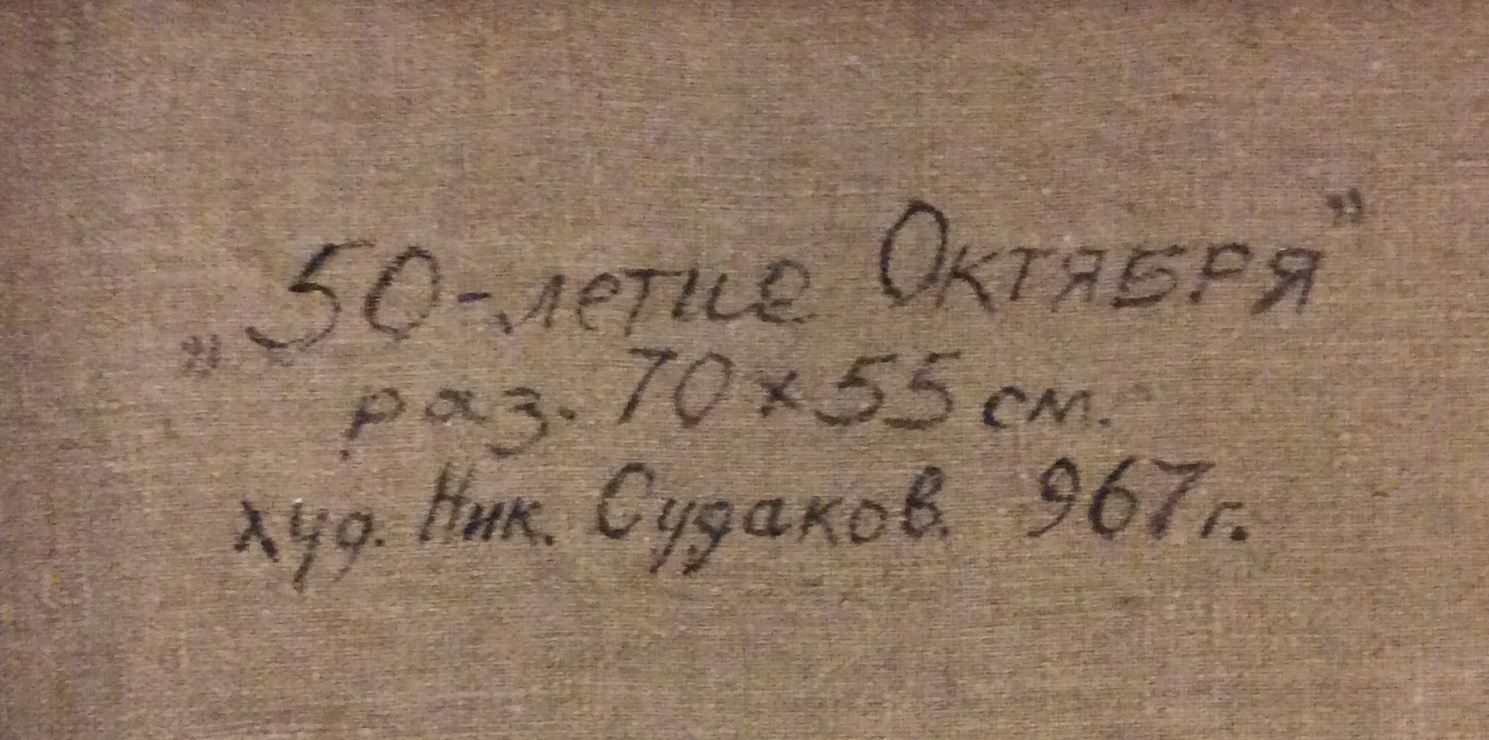 „50-летие Октября”
раз. 70×55 см.
худ. Ник. Судаков. 967 г.